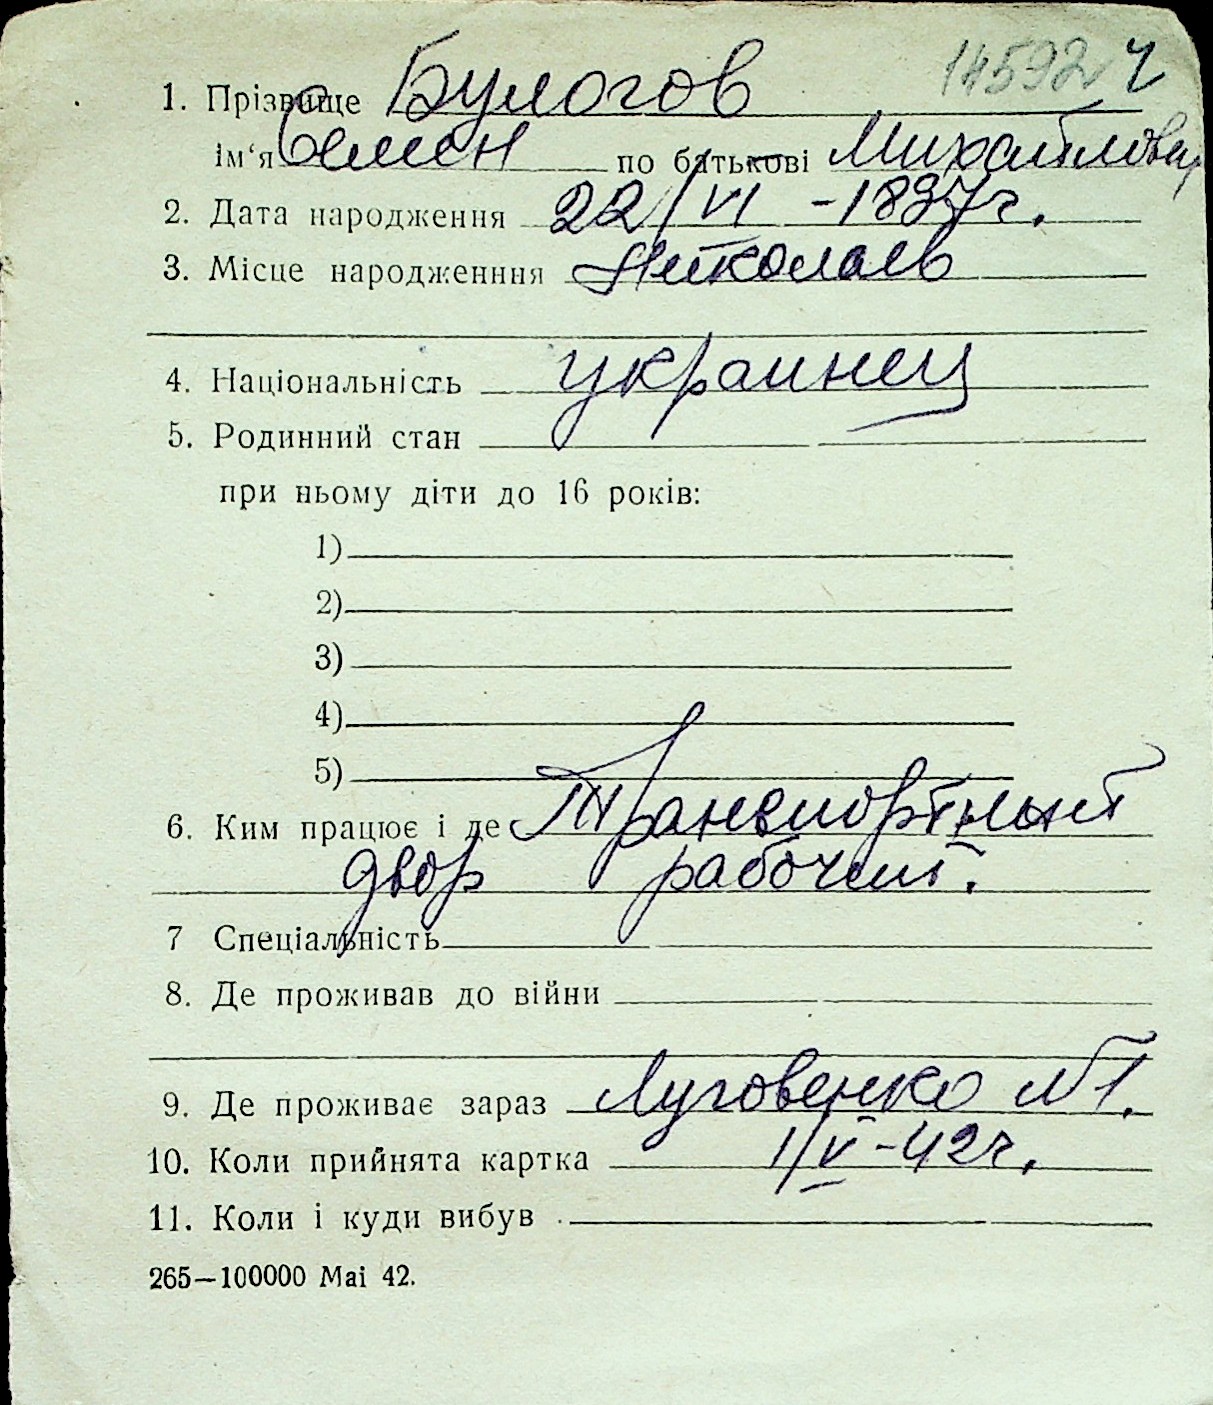 14592 ч
1. Прізвище Булогов
ім‘я Семен по батькові Михайлович
2. Дата народження 22/VI -1897г.
3. Місце народженння Николаев
4. Національність украинец
5. Родинний стан
при ньому діти до 16 років:
1)
2)
3)
4)
5)
6. Ким працює і де Транспортный
двор рабочий.
7 Спеціальність
8. Де проживав до війни
9. Де проживає зараз Луговенко №1.
10. Коли прийнята картка 1/V-42г.
11. Коли і куди вибув
265—100000 Маі 42.